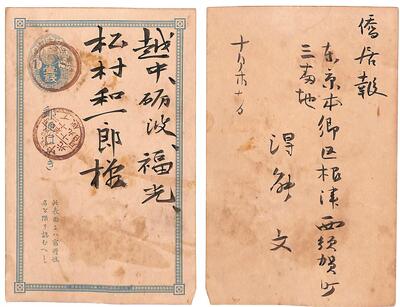 越中、礪波、福光、
松村和一郎様
郵便はがき
僑居報
東京本郷区根津西須賀町
三番地
得能文
十月廿十日